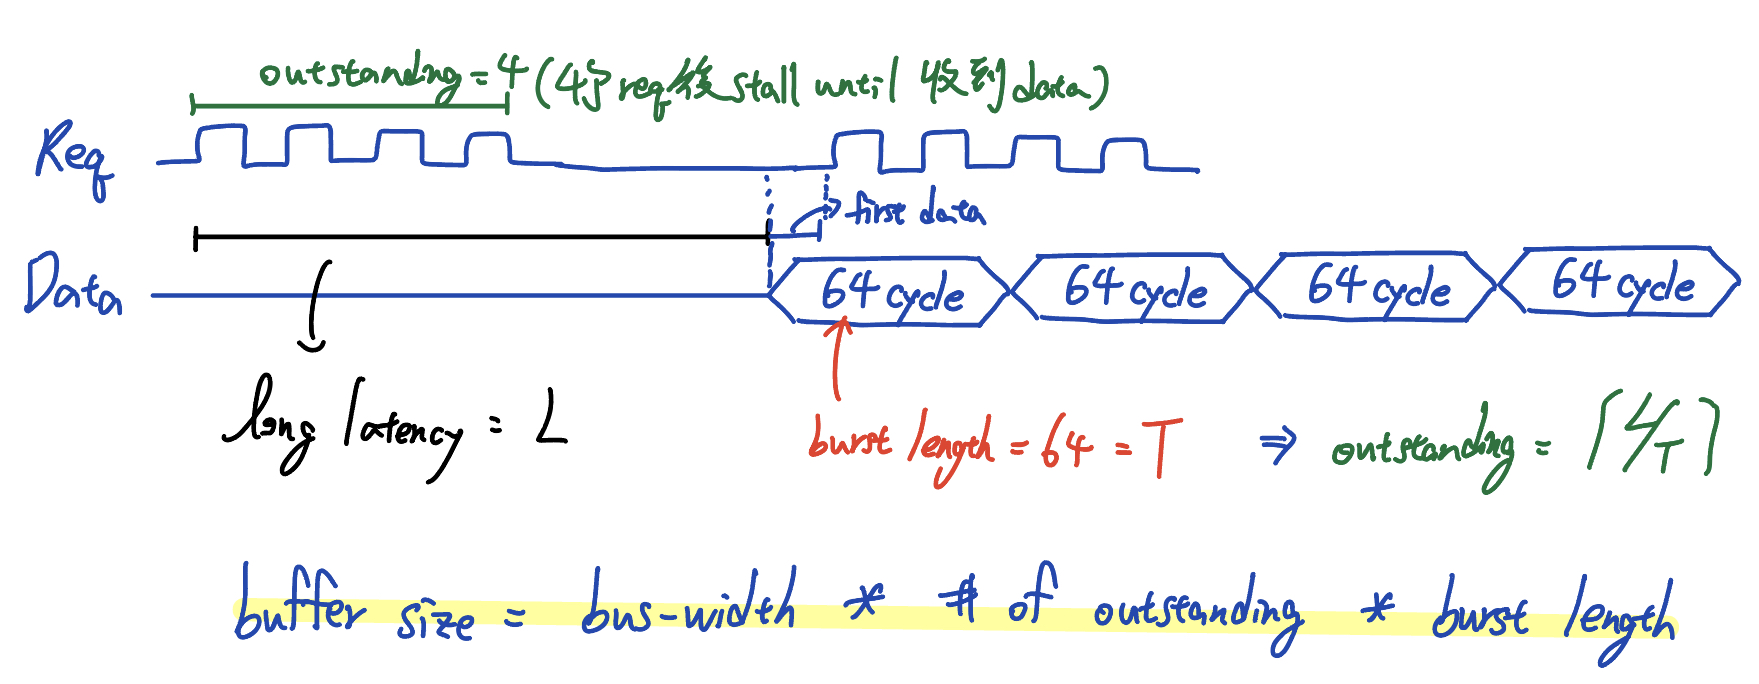 outstanding = 4 (4個req後stall until 收到data)
Req
first data
Data
64 cycle 64 cycle 64 cycle 64 cycle
long latency = L
burst length = 64 = T ⇒ outstanding = ⌈L/T⌉
buffer size = bus-width * # of outstanding * burst length